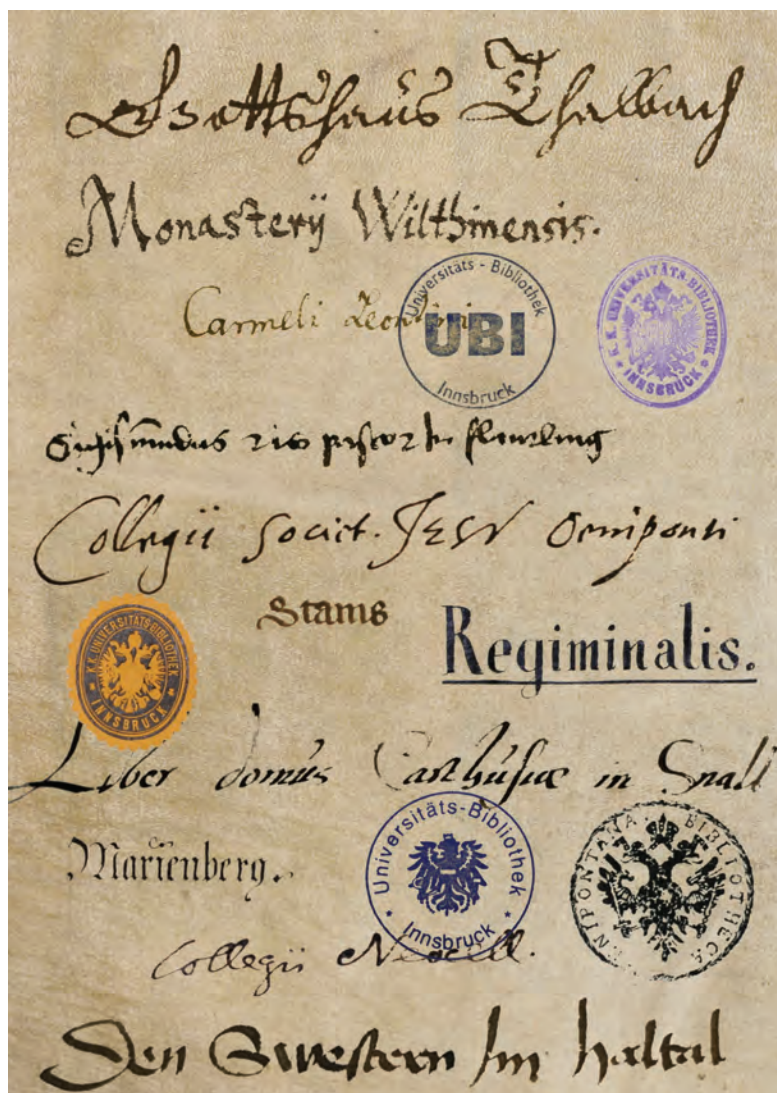 Gottshaus Thalbach
Monasterÿ Wilthinensis.
Carmeli
Universitäts - Bibliothek
UBI
Innsbruck
K.K. UNIVERSITÄTS-BIBLIOTHEK
INNSBRUCK
Sigismundus ris
Collegii Societ. JESV Oeniponti
Stams
Regiminalis.
K.K. UNIVERSITÄTSBIBLIOTHEK
INNSBRUCK
Liber domus Carthusiae in Snals
Marienberg.
Universitäts-Bibliothek
Innsbruck
BIBLIOTHECA
Collegii
Den Swestern Im halltal